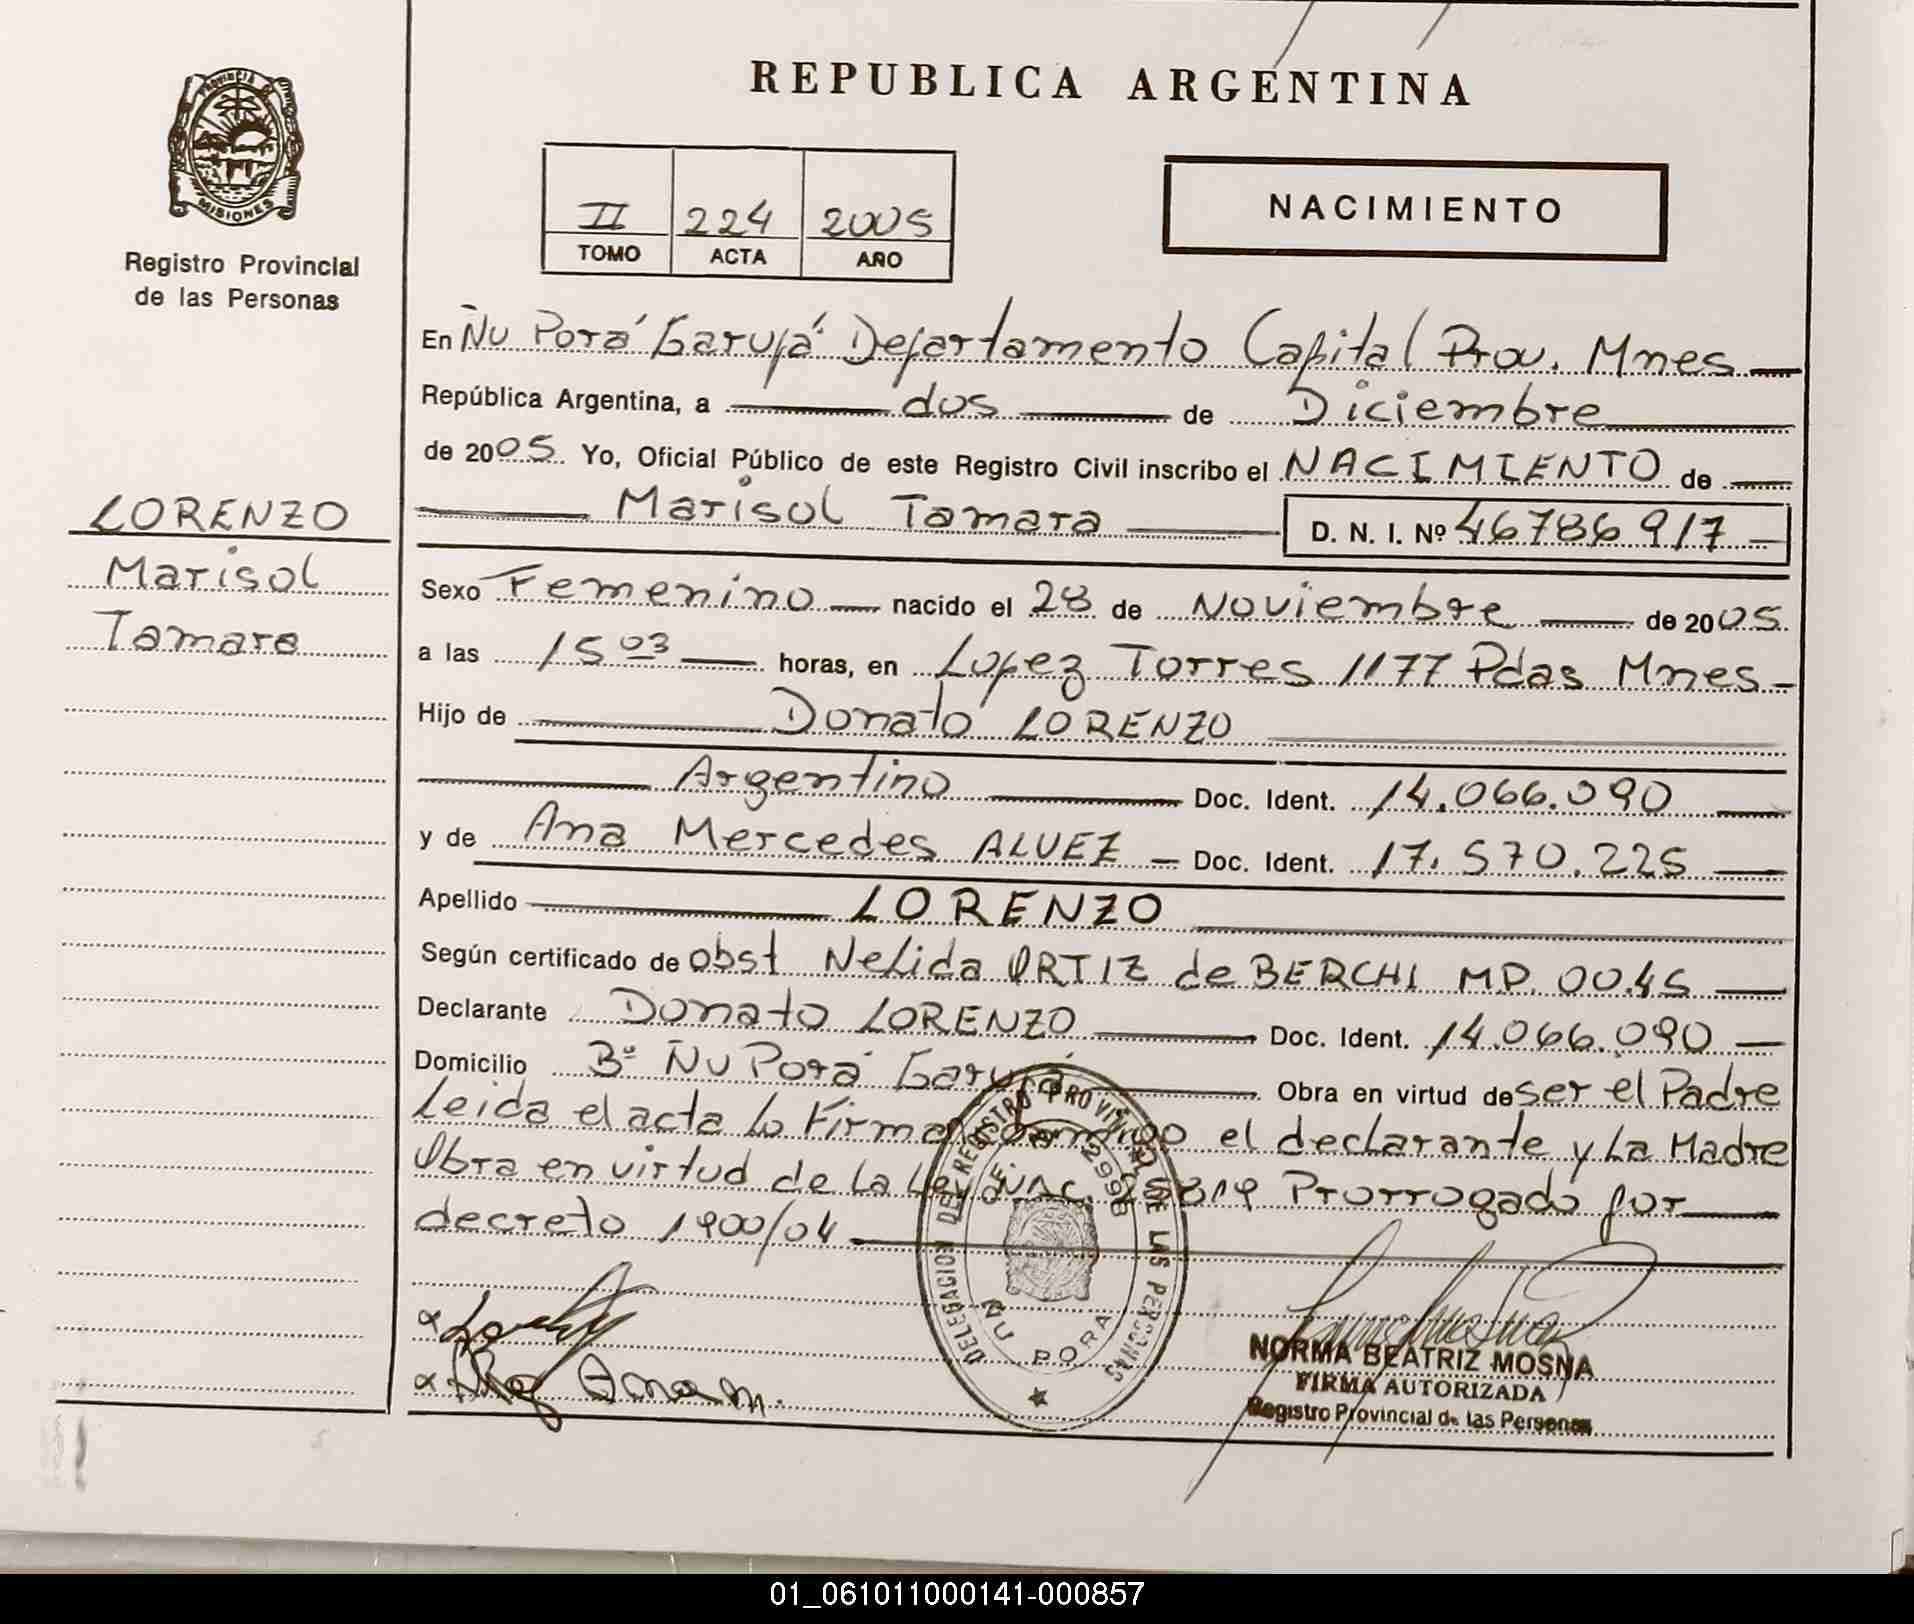 REPUBLICA ARGENTINA
PROVINCIA DE MISIONES
Registro Provincial
de las Personas
II 224 2005
TOMO ACTA AÑO
NACIMIENTO
En Ñu Porá Garupá Departamento Capital Prov. Mnes
República Argentina, a dos de Diciembre
de 2005. Yo, Oficial Público de este Registro Civil inscribo el NACIMIENTO de
Marisol Tamara D. N. I. Nº 46786917
LORENZO
Marisol
Tamara
Sexo Femenino nacido el 28 de Noviembre de 2005.
a las 15 03 horas, en Lopez Torres 1177 Pdas Mnes
Hijo de Donato LORENZO
Argentino Doc. Ident. 14.066.090
y de Ana Mercedes ALVEZ Doc. Ident. 17.570.225
Apellido LORENZO
Según certificado de obst Nelida ORTIZ de BERCHI MP. 00.45
Declarante Donato LORENZO Doc. Ident. 14.066.090
Domicilio Bº Ñu Porá Garupá Obra en virtud de ser el Padre
Leida el acta lo Firman conmigo el declarante y La Madre
Obra en virtud de la Ley Nac. 25819 Prorrogado por
decreto 1900/04
DELEGACION DEL REGISTRO PROVINCIAL DE LAS PERSONAS
2998
ÑU PORA
Ana m.
NORMA BEATRIZ MOSNA
FIRMA AUTORIZADA
Registro Provincial de las Personas
01_061011000141-000857